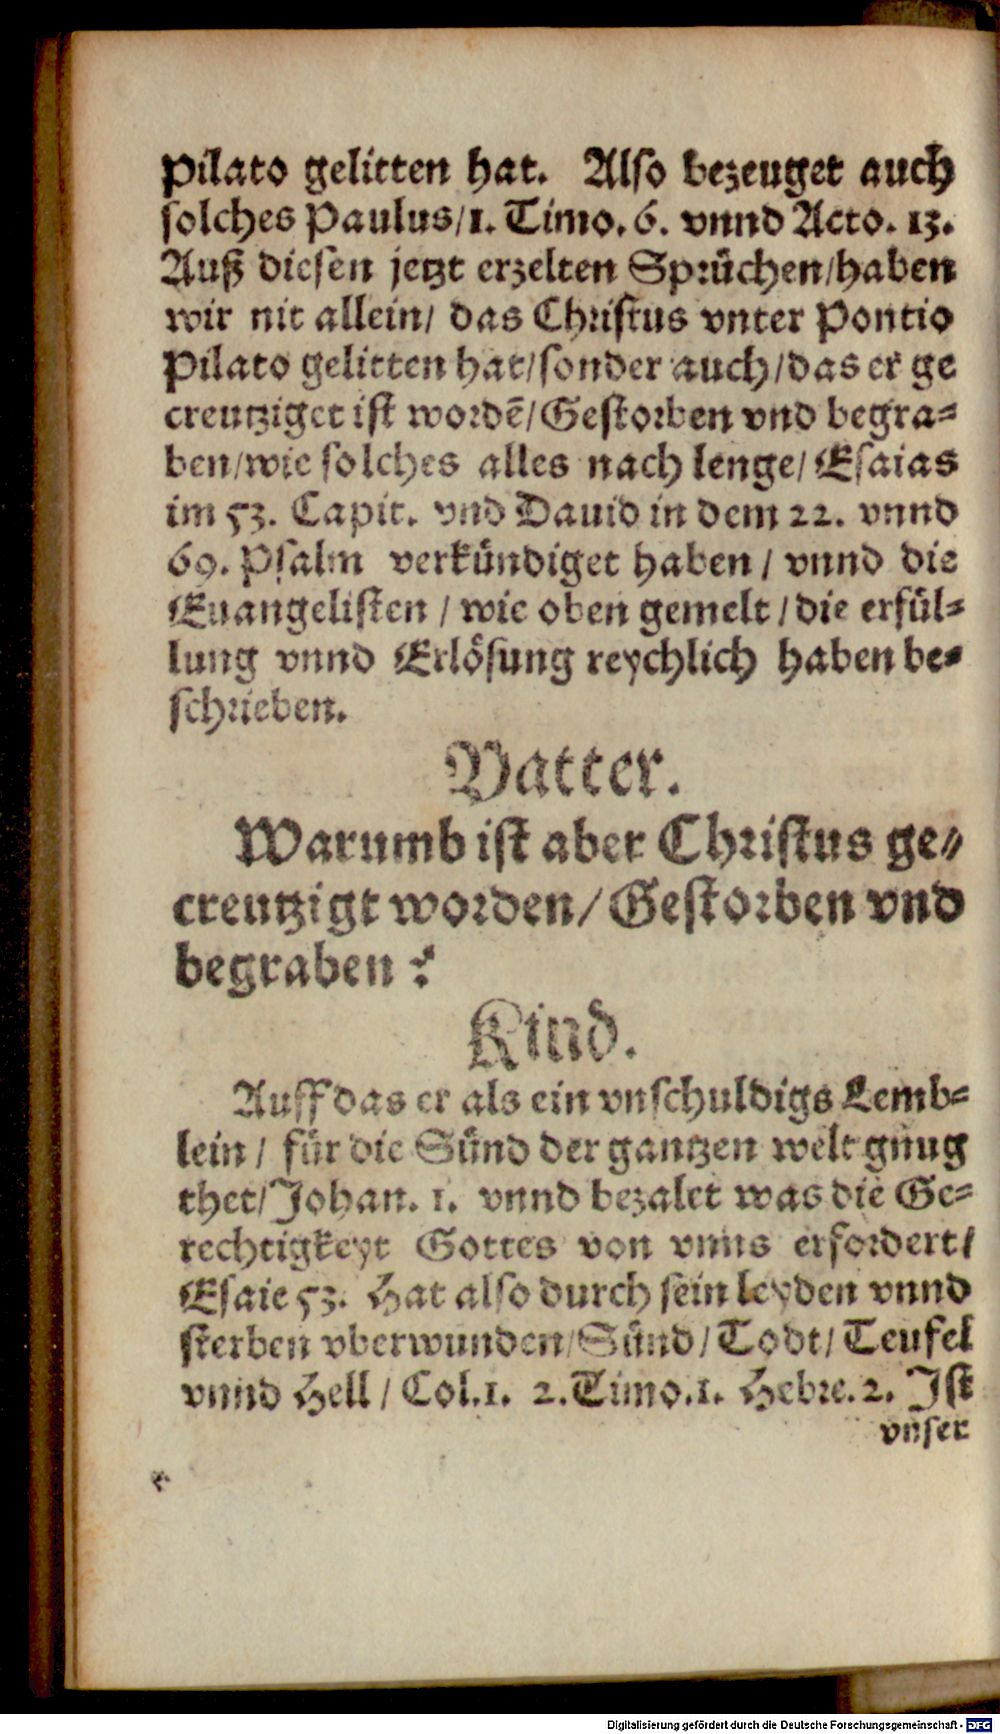 Pilato gelitten hat. Also bezeuget auch
solches Paulus/1. Timo. 6. vnnd Acto. 13.
Auß diesen jetzt erzelten Sprüchen/haben
wir nit allein/ das Christus vnter Pontio
Pilato gelitten hat/sonder auch/das er ge
creutziget ist wordē/Gestorben vnd begra-
ben/wie solches alles nach lenge/ Esaias
im 53. Capit. vnd Dauid in dem 22. vnnd
69. Psalm verkündiget haben / vnnd die
Euangelisten / wie oben gemelt / die erfül-
lung vnnd Erlösung reychlich haben be-
schrieben.
Vatter.
Warumb ist aber Christus ge-
creutzigt worden/ Gestorben vnd
begraben?
Kind.
Auff das er als ein vnschuldigs Lemb-
lein / für die Sünd der gantzen welt gnug
thet/Johan. 1. vnnd bezalet was die Ge-
rechtigkeyt Gottes von vnns erfordert/
Esaie 53. Hat also durch sein leyden vnnd
sterben vberwunden/Sünd/Todt/Teufel
vnnd Hell / Col.1. 2.Timo.1. Hebre.2. Ist
vnser
Digitalisierung gefördert durch die Deutsche Forschungsgemeinschaft - DFG